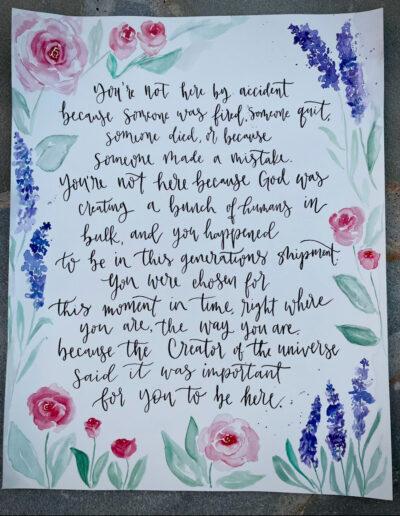 You're not here by accident
because someone was fired, someone quit,
someone died, or because
someone made a mistake.
You're not here because God was
creating a bunch of humans in
bulk, and you happened
to be in this generations shipment.
You were chosen for
this moment in time, right where
you are, the way you are,
because the Creator of the universe
said it was important
for you to be here.